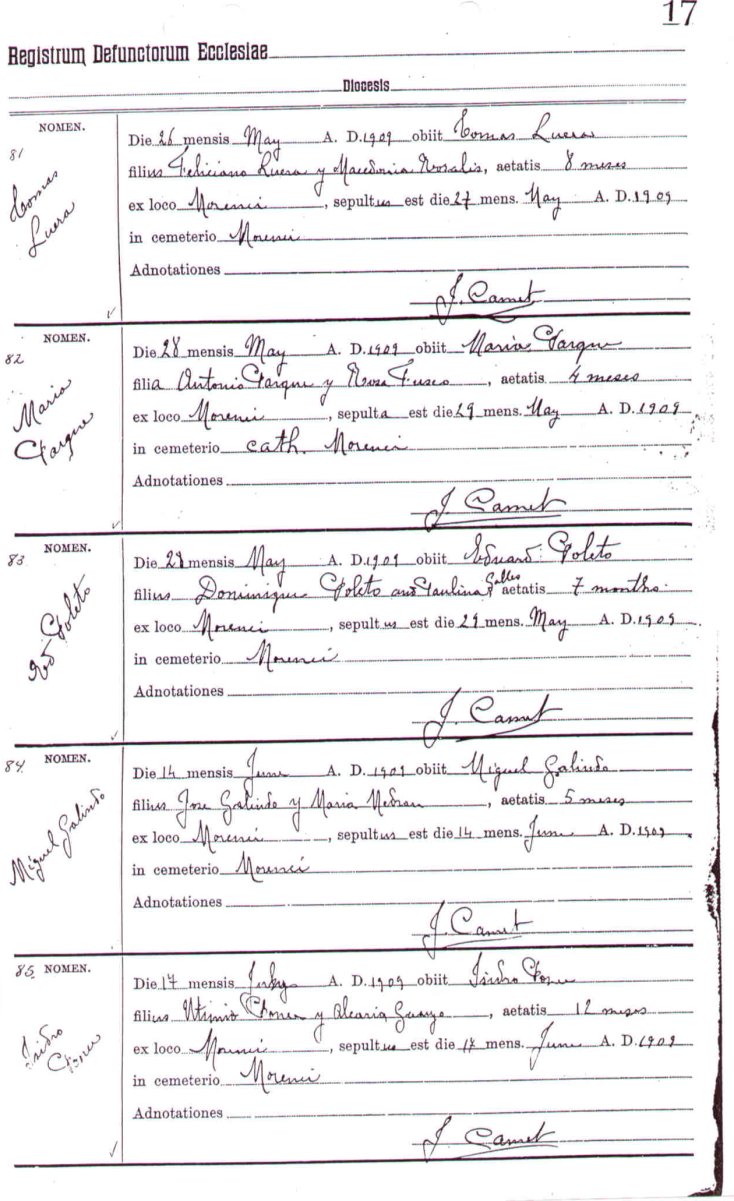 17
Registrum Defunctorum Ecclesiae
Diocesis
81 NOMEN.
Tomas Luera
Die 26 mensis May A. D. 1909 obiit Tomas Luera
filius Feliciano Luera y Macedonia Rosalis, aetatis 8 meses
ex loco Morenci, sepultus est die 27 mens. May A. D. 1909
in cemeterio Morenci
Adnotationes
J. Camet
82 NOMEN.
Maria
Die 28 mensis May A. D. 1909 obiit Maria
filia Antonio y Rosa, aetatis 4 meses
ex loco Morenci, sepulta est die 29 mens. May A. D. 1909
in cemeterio cath. Morenci
Adnotationes
J Camet
83 NOMEN.
Ed Poleto
Die 28 mensis May A. D. 1909 obiit Eduard Poleto
filius Dominique Poleto and Paulina aetatis 7 months
ex loco Morenci, sepultus est die 29 mens. May A. D. 1909
in cemeterio Morenci
Adnotationes
J. Camet
84 NOMEN.
Miguel Galindo
Die 14 mensis June A. D. 1909 obiit Miguel Galindo
filius Jose Galindo y Maria, aetatis 5 meses
ex loco Morenci, sepultus est die 14 mens. June A. D. 1909
in cemeterio Morenci
Adnotationes
J. Camet
85 NOMEN.
Isidro
Die 17 mensis A. D. 1909 obiit Isidro
filius y, aetatis 12 meses
ex loco Morenci, sepultus est die 17 mens. June A. D. 1909
in cemeterio Morenci
Adnotationes
J Camet